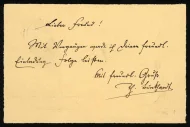 Lieber Freund!
Mit Vergnügen werde ich Deiner freundl.
Einladung Folge leisten.
Mit freundl. Gruß